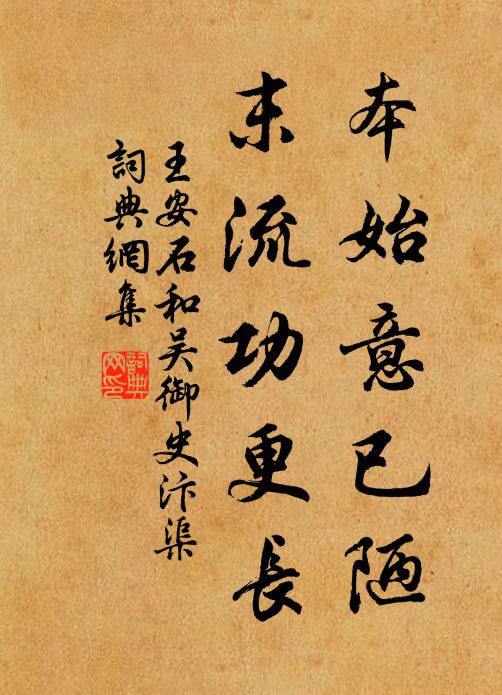 本始意已陋
末流功更長
王安石和吴御史汴渠
詞典網集
詞典
网印